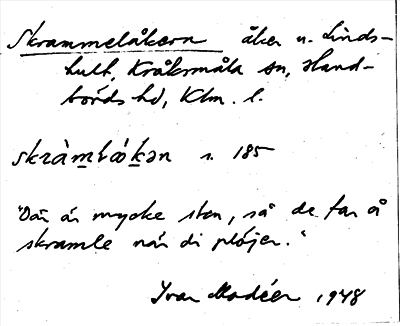 Skrammelåkern åker u. Linds-
hult, Kråksmåla sn, Hand-
börds hd, Klm. l.
skràm̲bǻk̲ən s. 185
"Där är mycke sten, så de tar å
skramle när di plöjer."
Ivar Modéer 1948